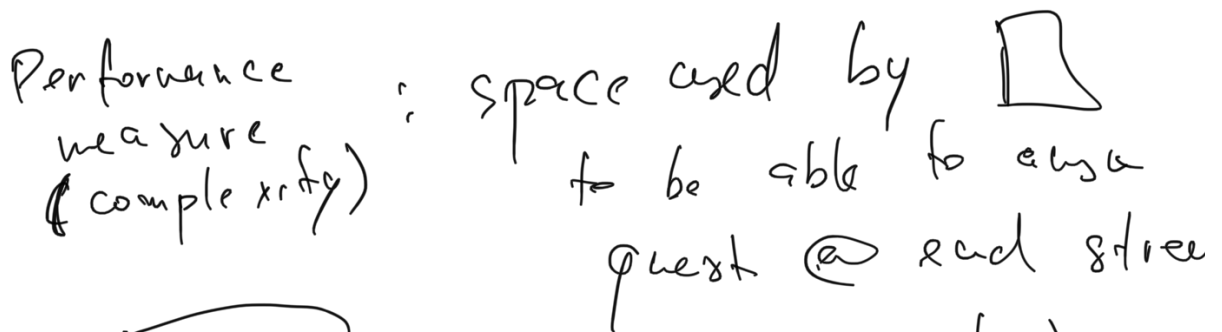 Performance
measure
(complexity)
: space used by
to be able to answ
quest @ end strea